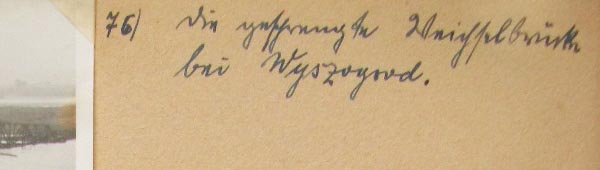 76) Die gesprengte Weichselbrücke
bei Wyszogrod.